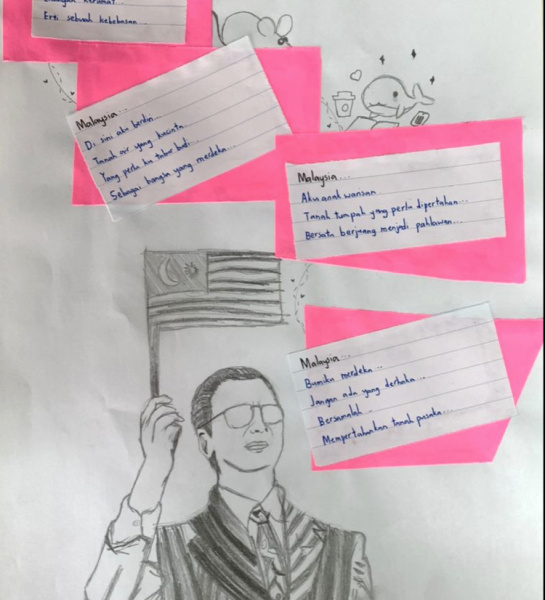 Erti sebuah kebebasan...
Malaysia...
Di sini aku berdiri...
Tanah air yang kucinta...
Yang perlu ku tabur bakti...
Sebagai bangsa yang merdeka...
Malaysia...
Aku anak warisan
Tanah tumpah yang perlu dipertahan...
Bersatu berjuang menjadi pahlawan..
Malaysia...
Bumiku merdeka...
Jangan ada yang derhaka...
Bersamalah..
Mempertahankan tanah pusaka...